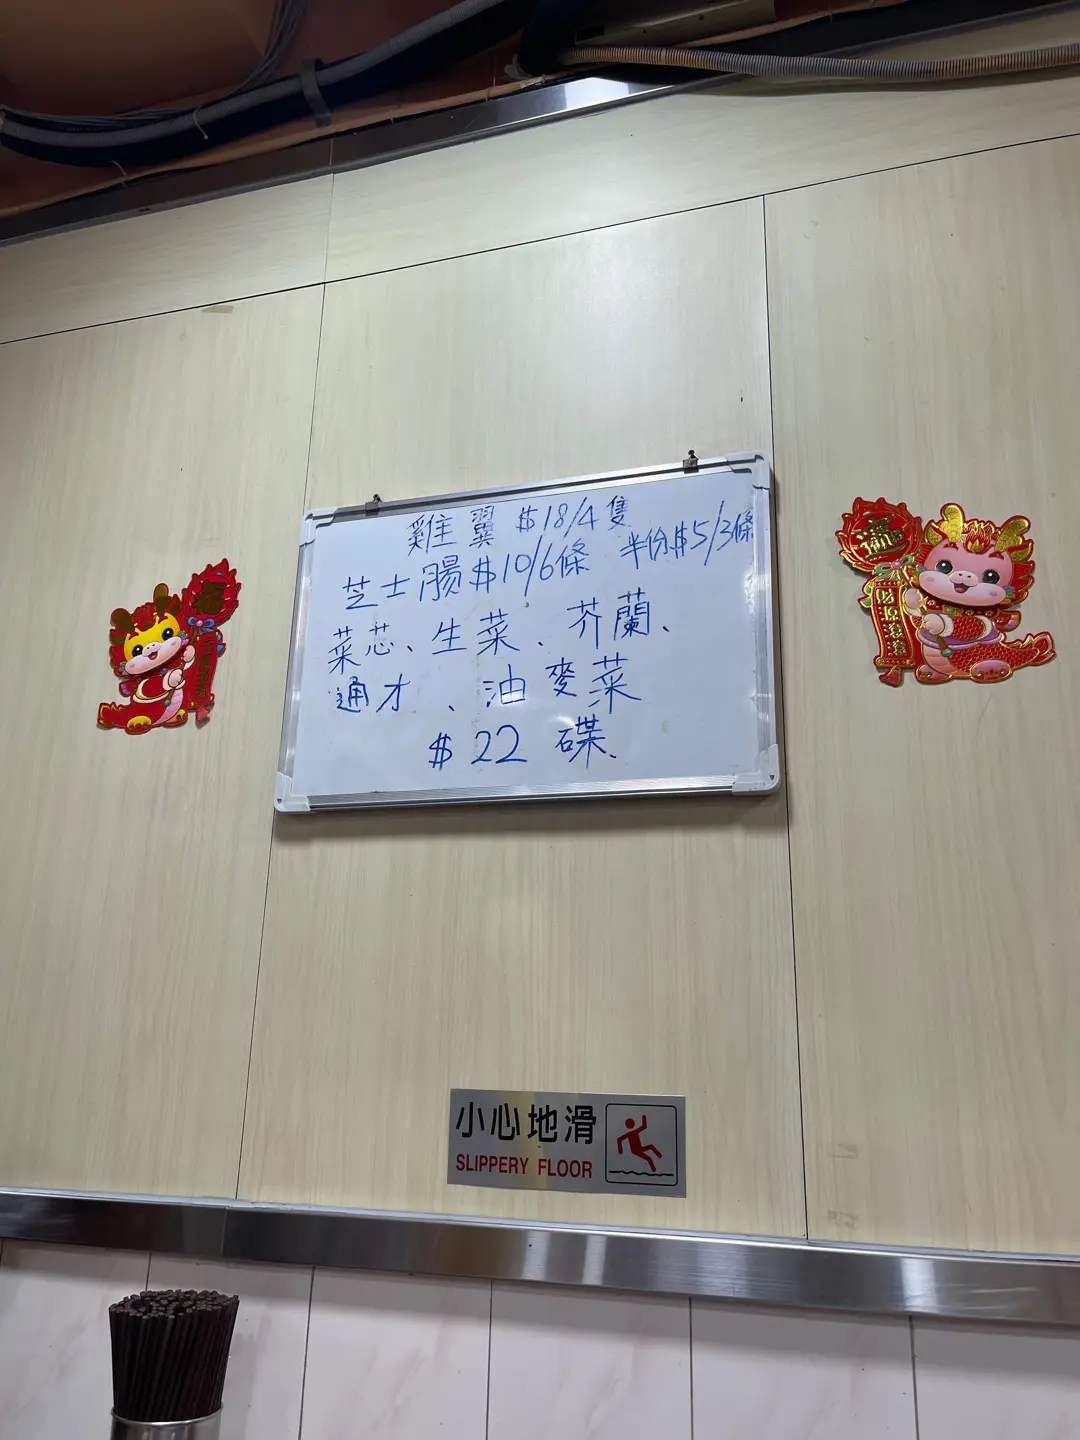 雞翼 $18/4隻
芝士腸$10/6條 半份$5/3條
菜芯、生菜、芥蘭、
通才、油麥菜
$22 碟、
福
財源滾滾
小心地滑
SLIPPERY FLOOR